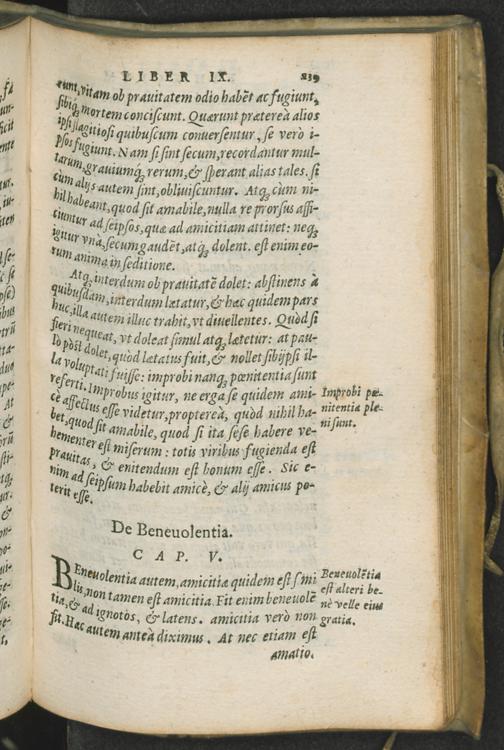 LIBER IX. 239
runt, vitam ob prauitatem odio habēt ac fugiunt,
sibiq; mortem conciscunt. Quærunt prætereà alios
ipsi flagitiosi quibuscum conuersentur, se verò i-
psos fugiunt. Nam si sint secum, recordantur mul-
tarum, grauiumq; rerum, & sperant alias tales. si
cum alijs autem sint, obliuiscuntur. Atq; cùm ni-
hil habeant, quod sit amabile, nulla re prorsus affi-
ciuntur ad seipsos, quæ ad amicitiam attinet: neq;
igitur vnà, secum gaudēt, atq; dolent. est enim eo-
rum anima in seditione.
Atq; interdum ob prauitatē dolet: abstinens à
quibusdam, interdum lætatur, & hæc quidem pars
huc, illa autem illuc trahit, vt diuellentes. Quòd si
fieri nequeat, vt doleat simul atq; lætetur: at pau-
lò pòst dolet, quòd lætatus fuit, & nollet sibijpsi il-
la voluptati fuisse: improbi nanq; pœnitentia sunt
referti. Improbus igitur, ne erga se quidem ami-
cè affectus esse videtur, proptereà, quòd nihil ha-
bet, quod sit amabile, quod si ita sese habere ve-
hementer est miserum: totis viribus fugienda est
prauitas, & enitendum est bonum esse. Sic e-
nim ad seipsum habebit amicè, & alij amicus po-
terit esse.
Improbi pœ-
nitentia ple-
ni sunt.
De Beneuolentia.
CAP. V.
BEneuolentia autem, amicitiæ quidem est simi
lis, non tamen est amicitia. Fit enim beneuolē
tia, & ad ignotos, & latens. amicitia verò non
fit. Hæc autem anteà diximus. At nec etiam est
amatio.
Beneuolētia
est alteri be-
nè velle eius
gratia.